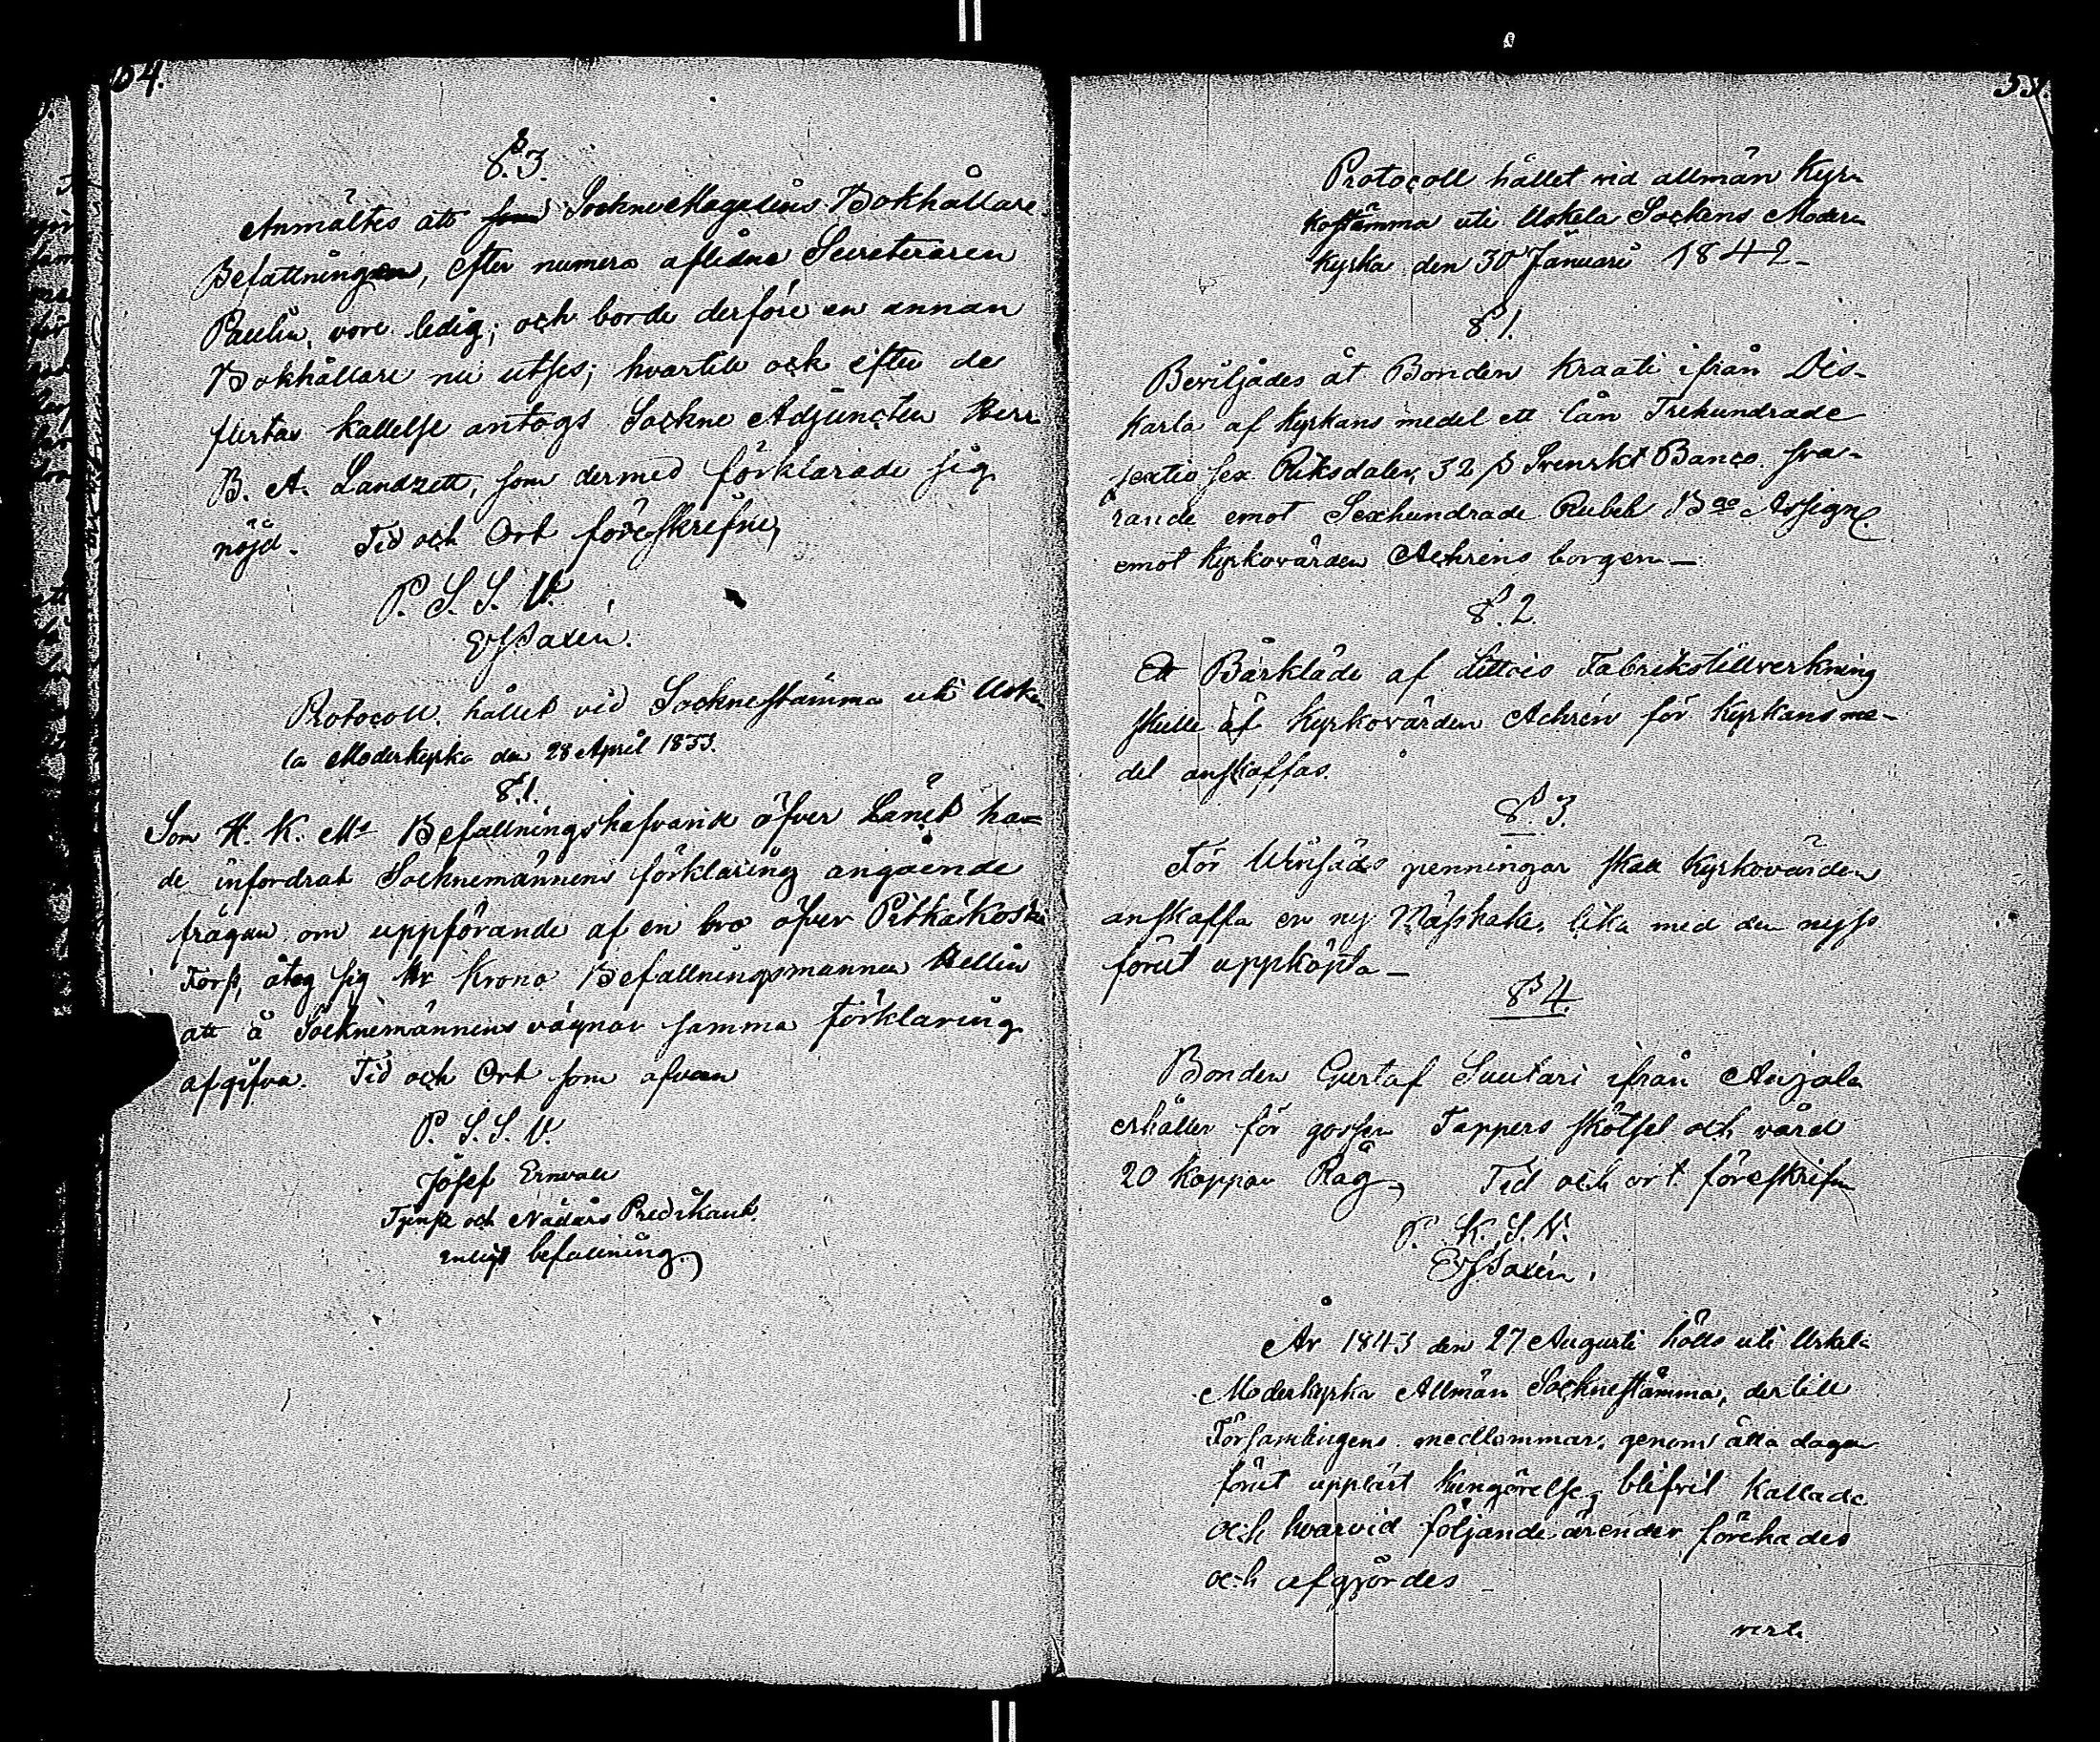 54.
§. 3.
Anmältes att Sockne Magasins Bokhållare
Befattningen, efter numera aflidne Secreteraren
Paulin, vore ledig; och borde derföre en annan
Bokhållare nu utses; hvartill och efter de
flertas kallelse antogs Sockne Adjuncten Herr
B. A. Landzett, som dermed förklarade sig
nöjd. Tid och Ort föreskrefne,
P. S. S. V.
Protocoll, hållet vid Socknestämma uti Uske
la Moderkyrka den 28 April 1833.
§. 1.
Som H. K. Mts Befallningshafvande öfver Länet ha=
de infordrat Socknemännens förklaring angående
frågan om uppförande af en bro öfver Pitkäkoski
Fors, åtog sig Hr Krono Befallningsmannen Hellin
att å Socknemännens vägnar samma förklaring
afgifva. Tid och Ort som ofvan
P. S. S. V.
Josef Ernvall
Tjenst och Nådårs Predikant,
enligt befallning.
Protocoll hållet vid allmän Kyr-
kostämma uti Uskela Sockens Moder-
kyrka den 30 Januari 1842-
§ 1.
Beviljades åt Bonden Kraati ifrån Vis-
karla af Kyrkans medel ett lån Trehundrade
sextio sex Riksdaler, 32 s Svenskt Banco sva-
rande emot Sexhundrade Rubel Bco Assign.
emot Kyrkovärden Achréns borgen—
§. 2.
Ett Bårkläde af Littois Fabrikstillverkning
skulle af Kyrkovärden Achrén för Kyrkans me-
del anskaffas.
§ 3.
För Vinsäds penningar skall Kyrkovärden
anskaffa en ny Mässhake, lika med den nyss
förut uppköpta—
§ 4.
Bonden Gustaf Suutari ifrån Anjala
erhåller för gossen Tappers skötsel och vård
20 kappar Råg, Tid och ort föreskrifne
P. K. S. V.
År 1843 den 27 Augusti hölls uti Uskela
Moderkyrka Allmän Socknestämma, dertill
Församlingens medlemmar, genom åtta dagar
förut uppläst Kungörelse, blifvit kallade
och hvarvid följande ärender förehades
och afgjordes-
vert.